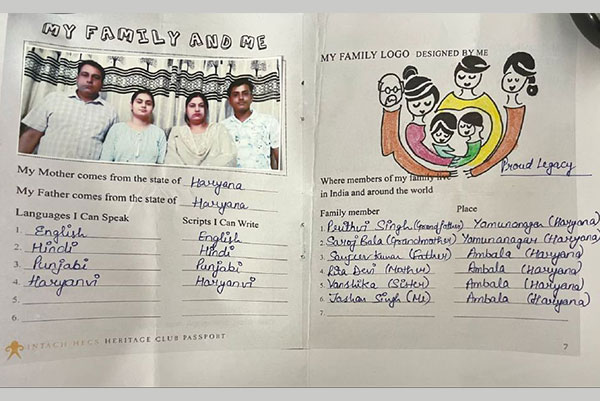 MY FAMILY AND ME
My Mother comes from the state of Haryana
My Father comes from the state of Haryana
Languages I Can Speak
Scripts I Can Write
1. English
English
2. Hindi
Hindi
3. Punjabi
Punjabi
4. Haryanvi
Haryanvi
5.
6.
INTACH HECS HERITAGE CLUB PASSPORT
MY FAMILY LOGO DESIGNED BY ME
Proud Legacy
Where members of my family live
in India and around the world
Family member
Place
1. Prithvi Singh (Grandfather) Yamunanagar (Haryana)
2. Saroj Bala (Grandmother) Yamunanagar (Haryana)
3. Sanjeev Kumar (Father) Ambala (Haryana)
4. Rita Devi (Mother) Ambala (Haryana)
5. Vanshika (Sister) Ambala (Haryana)
6. Jashan Singh (Me) Ambala (Haryana)
7.
7